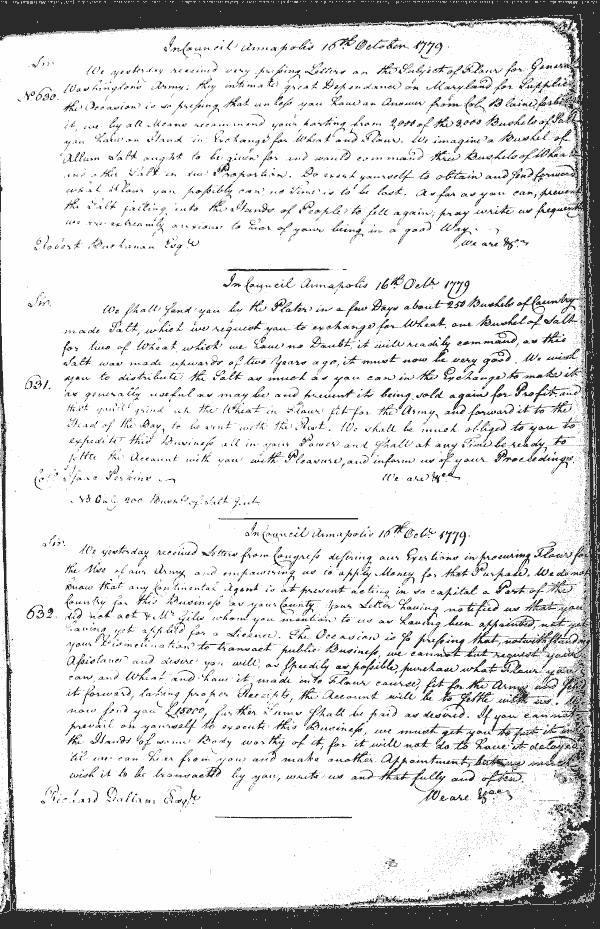 In Council Annapolis 16th October 1779.
Sir.
We yesterday received very pressing Letters on the Subject of Flour for General
No 630. Washington's Army; they intimate great Dependance on Maryland for Supplies
the Occasion is so pressing that unless you have an Answer from Col. Blaine forbid
it, we by all Means recommend your bartering from 2,000 of the 3,000 Bushels of Salt
you have on Hand in Exchange for Wheat and Flour. We imagine a Bushel of
Allum Salt ought to be given for and would command three Bushels of Wheat
and other Salt in due Proportion. Do exert yourself to obtain and send forward
what Flour you possibly can no Time is to be lost. As far as you can, prevent
the Salt falling into the Hands of People to sell again, pray write us frequent
we are extreamly anxious to hear of your being in a good Way.
Robert Buchanan Esqr.
We are &ca
In Council Annapolis 16th Octr. 1779
Sir.
We shall send you by the Plater in a few Days about 250 Bushels of Country
made Salt, which we request you to exchange for Wheat, one Bushel of Salt
for two of Wheat, which we have no Doubt it will readily command, as this
Salt was made upwards of two Years ago, it must now be very good. We wish
631. you to distribute the Salt as much as you can in the Exchange to make it
as generally useful as may be and prevent its being sold again for Profit, and
that you'll grind up the Wheat in Flour fit for the Army, and forward it to the
Head of the Bay, to be sent with the Rest. We shall be much obliged to you to
expedite this Business all in your Power and shall at any Time be ready to
settle the Account with you with Pleasure, and inform us of your Proceedings.
Colo. Isaac Perkins
We are &ca
NB Only 200 Bushls. of Salt sent
In Council Annapolis 16th Octr. 1779.
Sir.
We yesterday received Letters from Congress desiring our Exertions in procuring Flour for
the Use of our Army and empowering us to apply Money for that Purpose. We do not
know that any Continental Agent is at present acting in so capital a Part of the
632. Country for this Business as your County. Your Letter having notified us that you
did not act & Mr. Giles whom you mention to us as having been appointed, not yet
having yet applied for a Licence. The Occasion is so pressing that, notwithstanding
your Disinclination to transact public Business, we cannot but request your
Assistance and desire you will, as speedily as possible, purchase what Flour you
can, and Wheat and have it made into Flour course, fit for the Army and send
it forward, taking proper Receipts, the Account will be to settle with us. We
now send you £18000, further Sums shall be paid as desired. If you cannot
prevail on yourself to execute this Business, we must get you to put it in
the Hands of some Body worthy of it, for it will not do to have it delayed
'til we can hear from you and make another Appointment, but we much
wish it to be transacted by you, write us and that fully and often.
Richard Dallam Esqr.
We are &ca